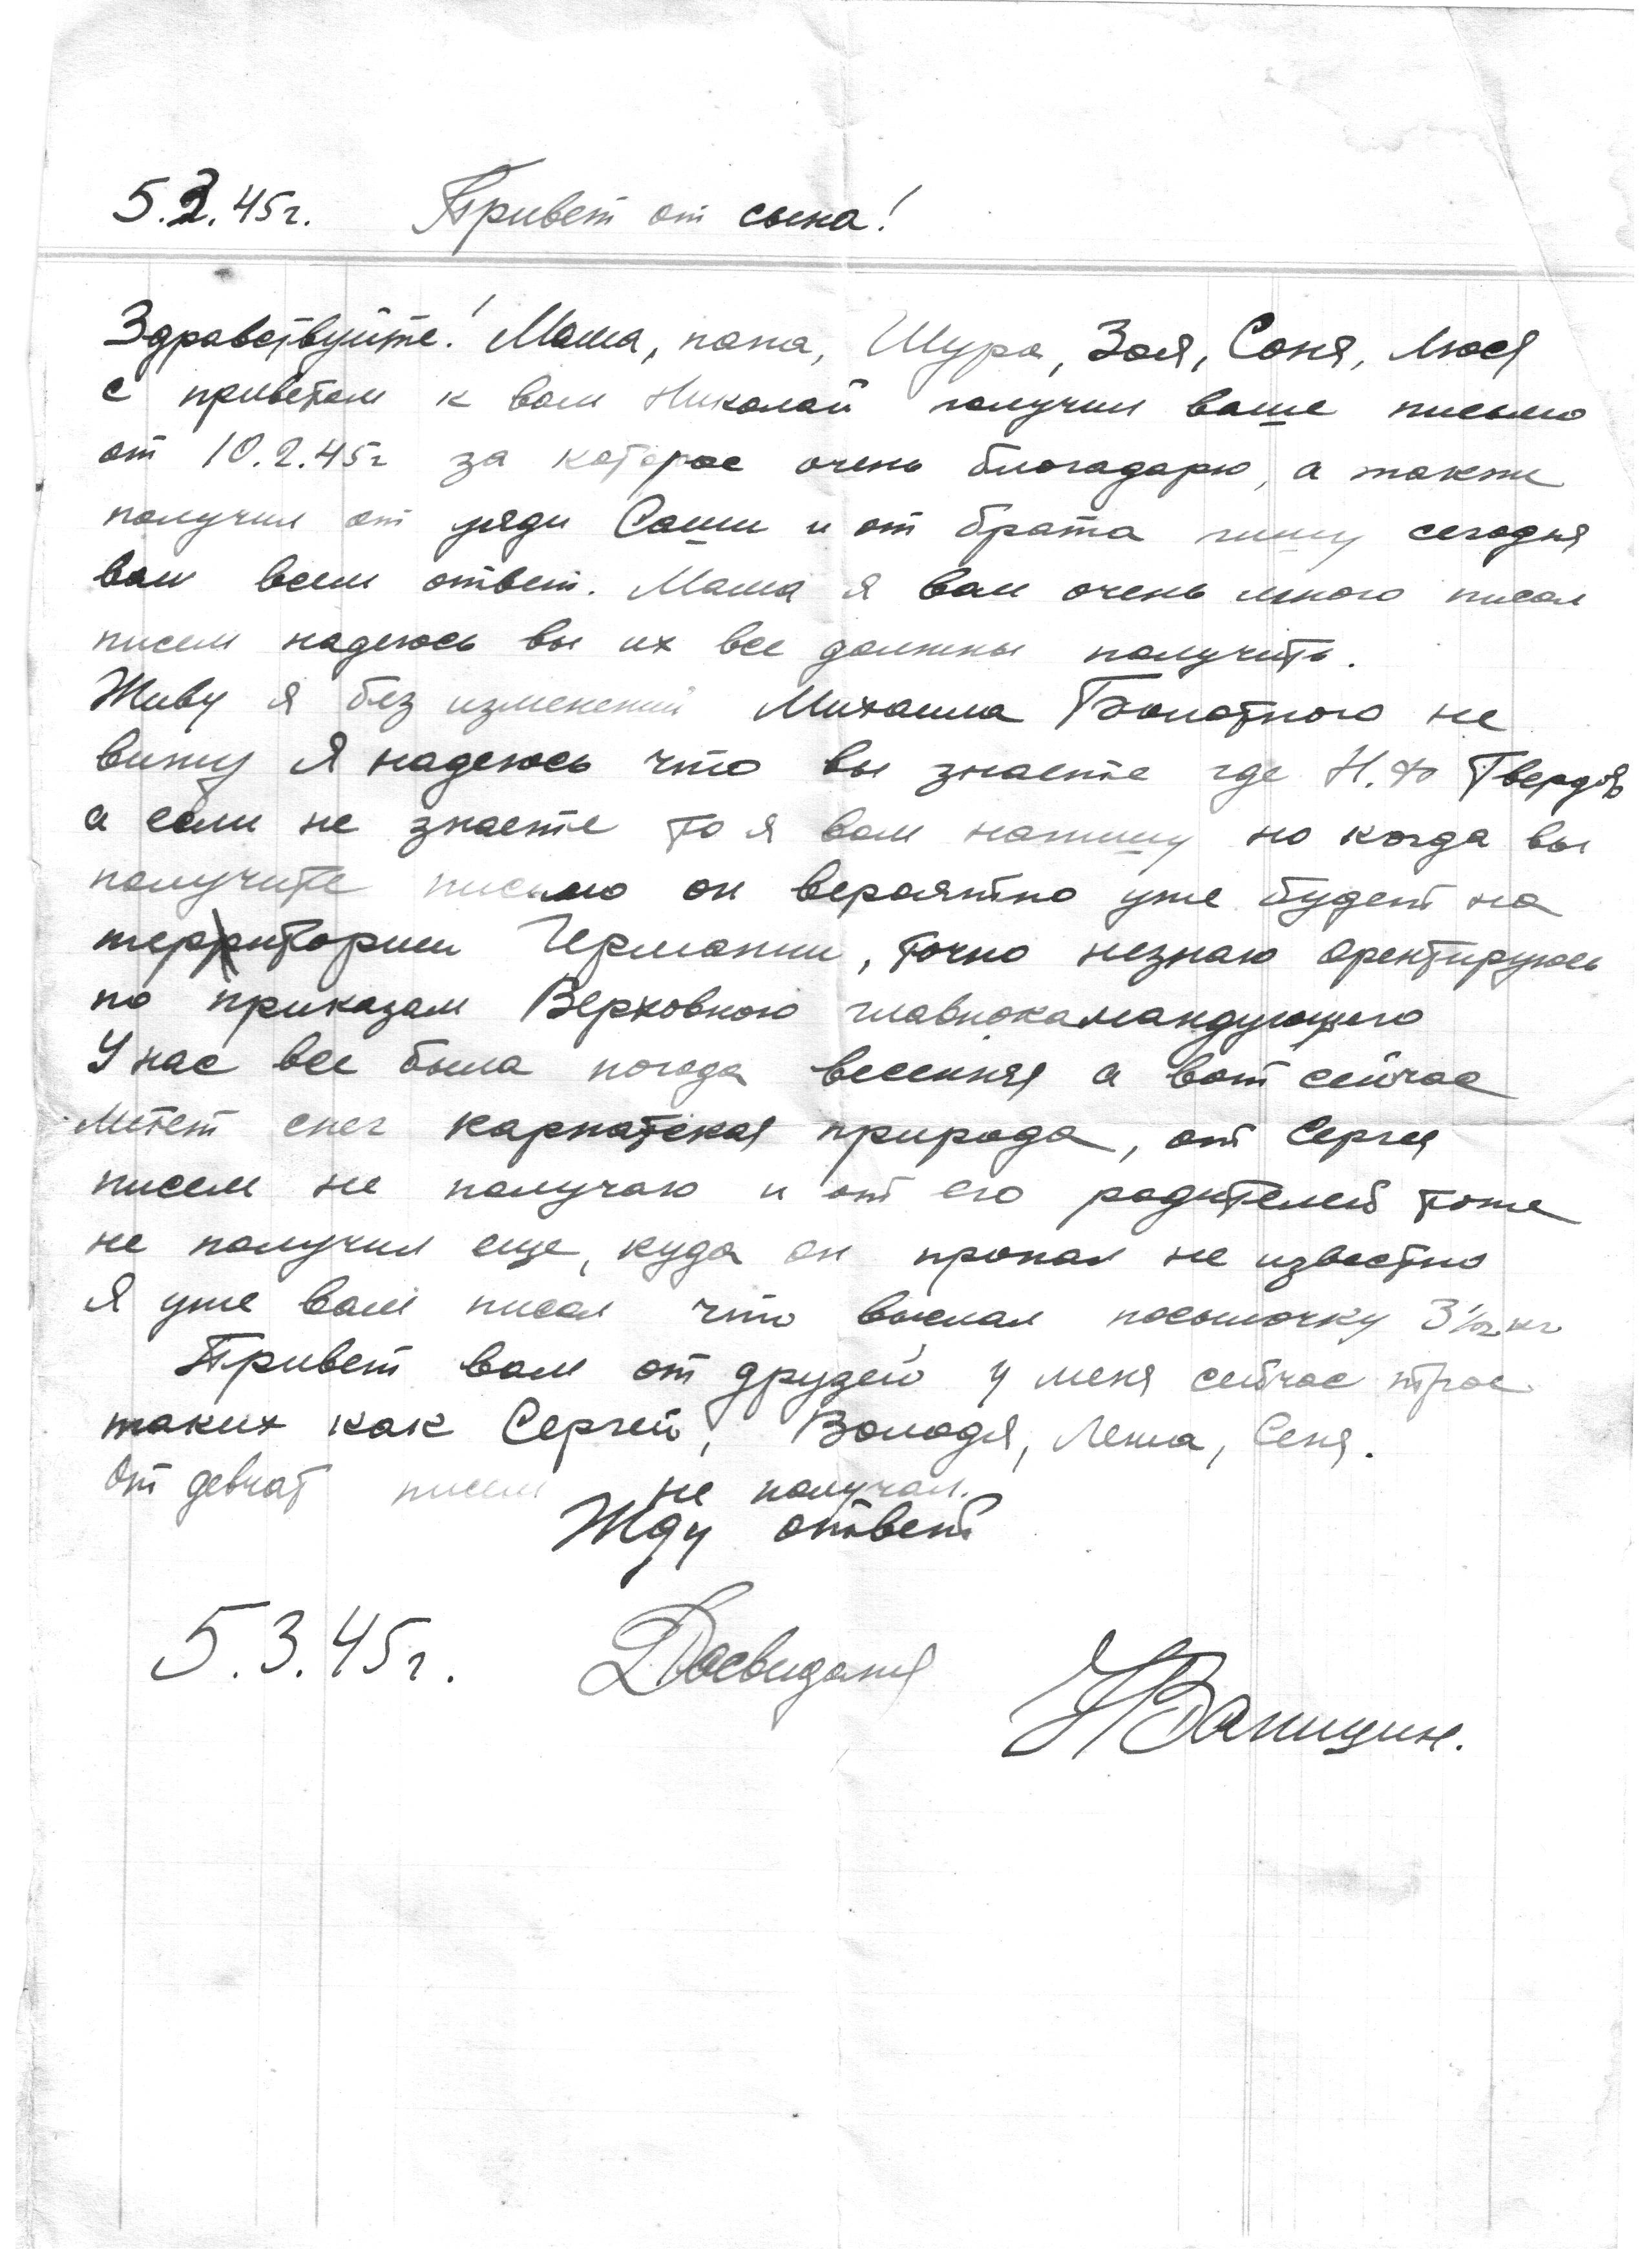 5.3.45г. Привет от сына!
Здравствуйте! Мама, папа, Шура, Зоя, Соня, Люся
с приветом к вам Николай получил ваше письмо
от 10.2.45г за которое очень благадарю, а также
получил от дяди Саши и от брата пишу сегодня
вам всем ответ. Мама я вам очень много писал
писем надеюсь вы их все должны получить.
Живу я без изменений Михаила Болотного не
вижу Я надеюсь что вы знаете где Н.Ф
а если не знаете то я вам напишу но когда вы
получите письмо он вероятно уже будет на
территории Германии, точно незнаю орентируюсь
по приказам Верховного главнокамандующего
У нас все была погода весенняя а вот сейчас
метет снег карпатская природа, от Сергея
писем не получаю и от его родителей тоже
не получил еще, куда он пропал не известно
Я уже вам писал что выслал посылочку 3½кг
Привет вам от друзей у меня сейчас трое
таких как Сергей, Володя, Леша, Сеня.
От девчат писем не получал.
Жду ответ
5.3.45г. Досвиданя